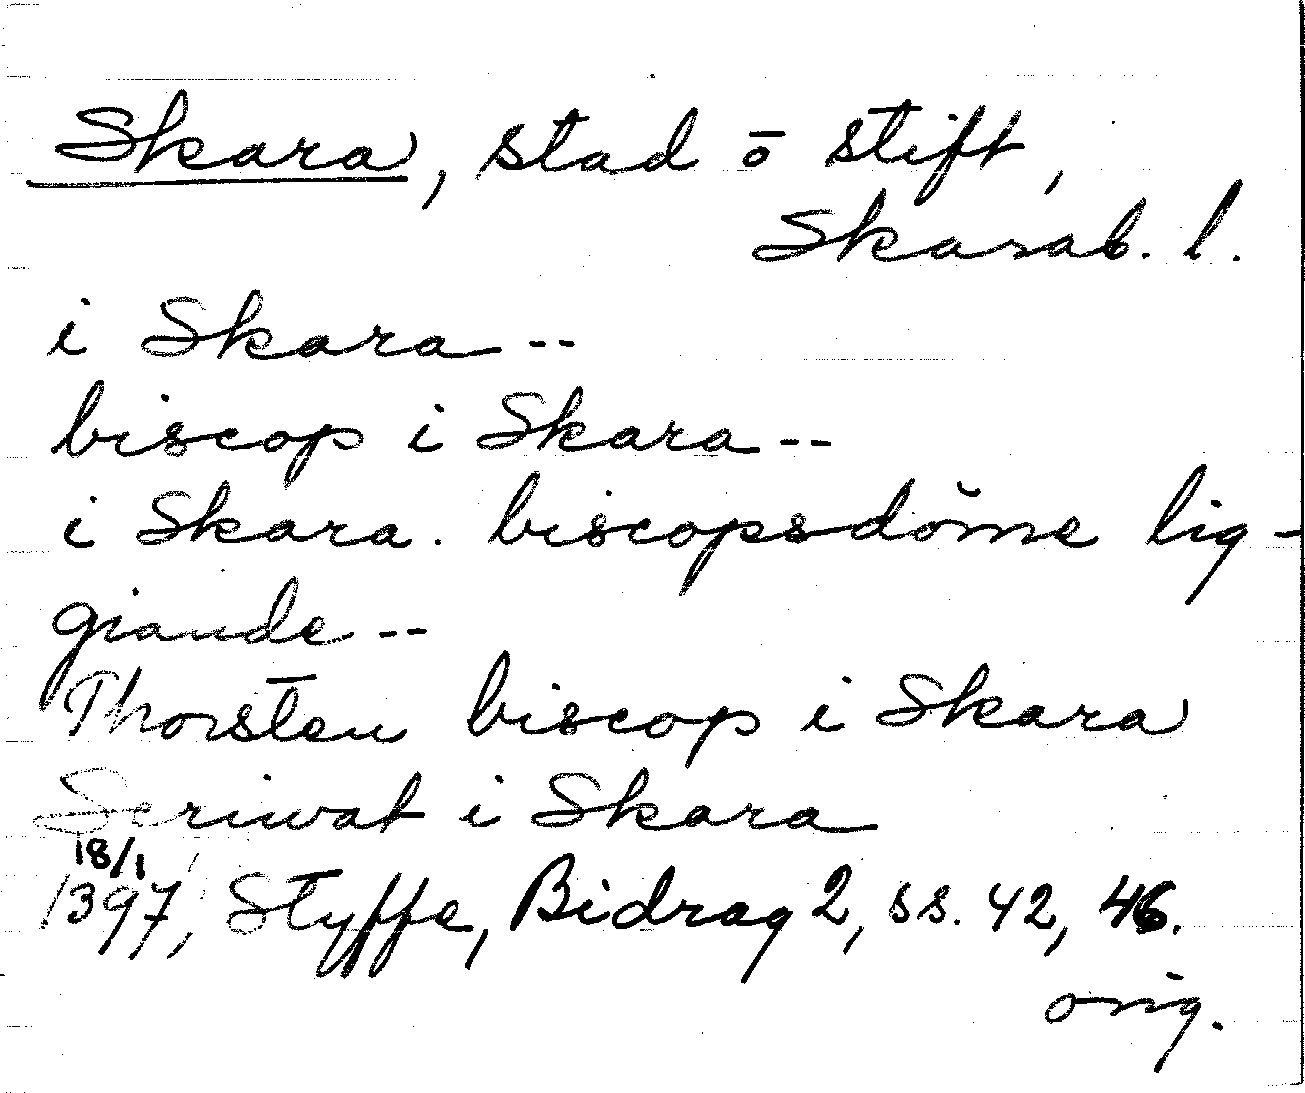 Skara, stad o stift,
Skarab. l.
i Skara --
biscop i Skara --
i Skara. biscopsdöme lig-
giande --
Thorsten biscop i Skara
Scriwat i Skara
18/1
1397, Styffe, Bidrag 2, ss. 42, 46.
orig.